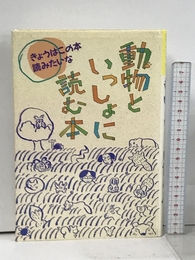 きょうはこの本
読みたいな
動物と
いっしょに
読む本